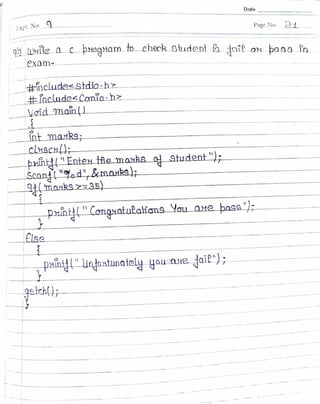 Date
Expt. No. 9
Page No. 21
9) Write a c program to check student is fail or pass in
exam-
#include<stdio.h>
#include<conio.h>
Void main()
{
int marks;
clrscr();
printf("Enter the marks of student");
scanf("%d",&marks);
If(marks>=35)
{
printf("Congratulations You are pass");
}
Else
{
printf("Unfortunately you are fail");
}
getch();
}